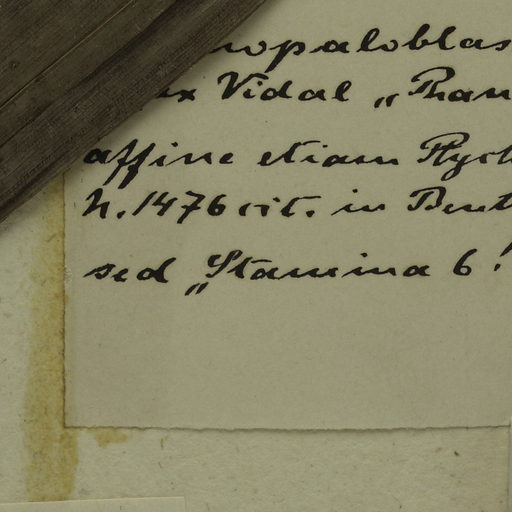 ropaloblas
ex Vidal „Phan
affine etiam Ptych
n. 1476 cit. in Bent
sed „Stamina 6!